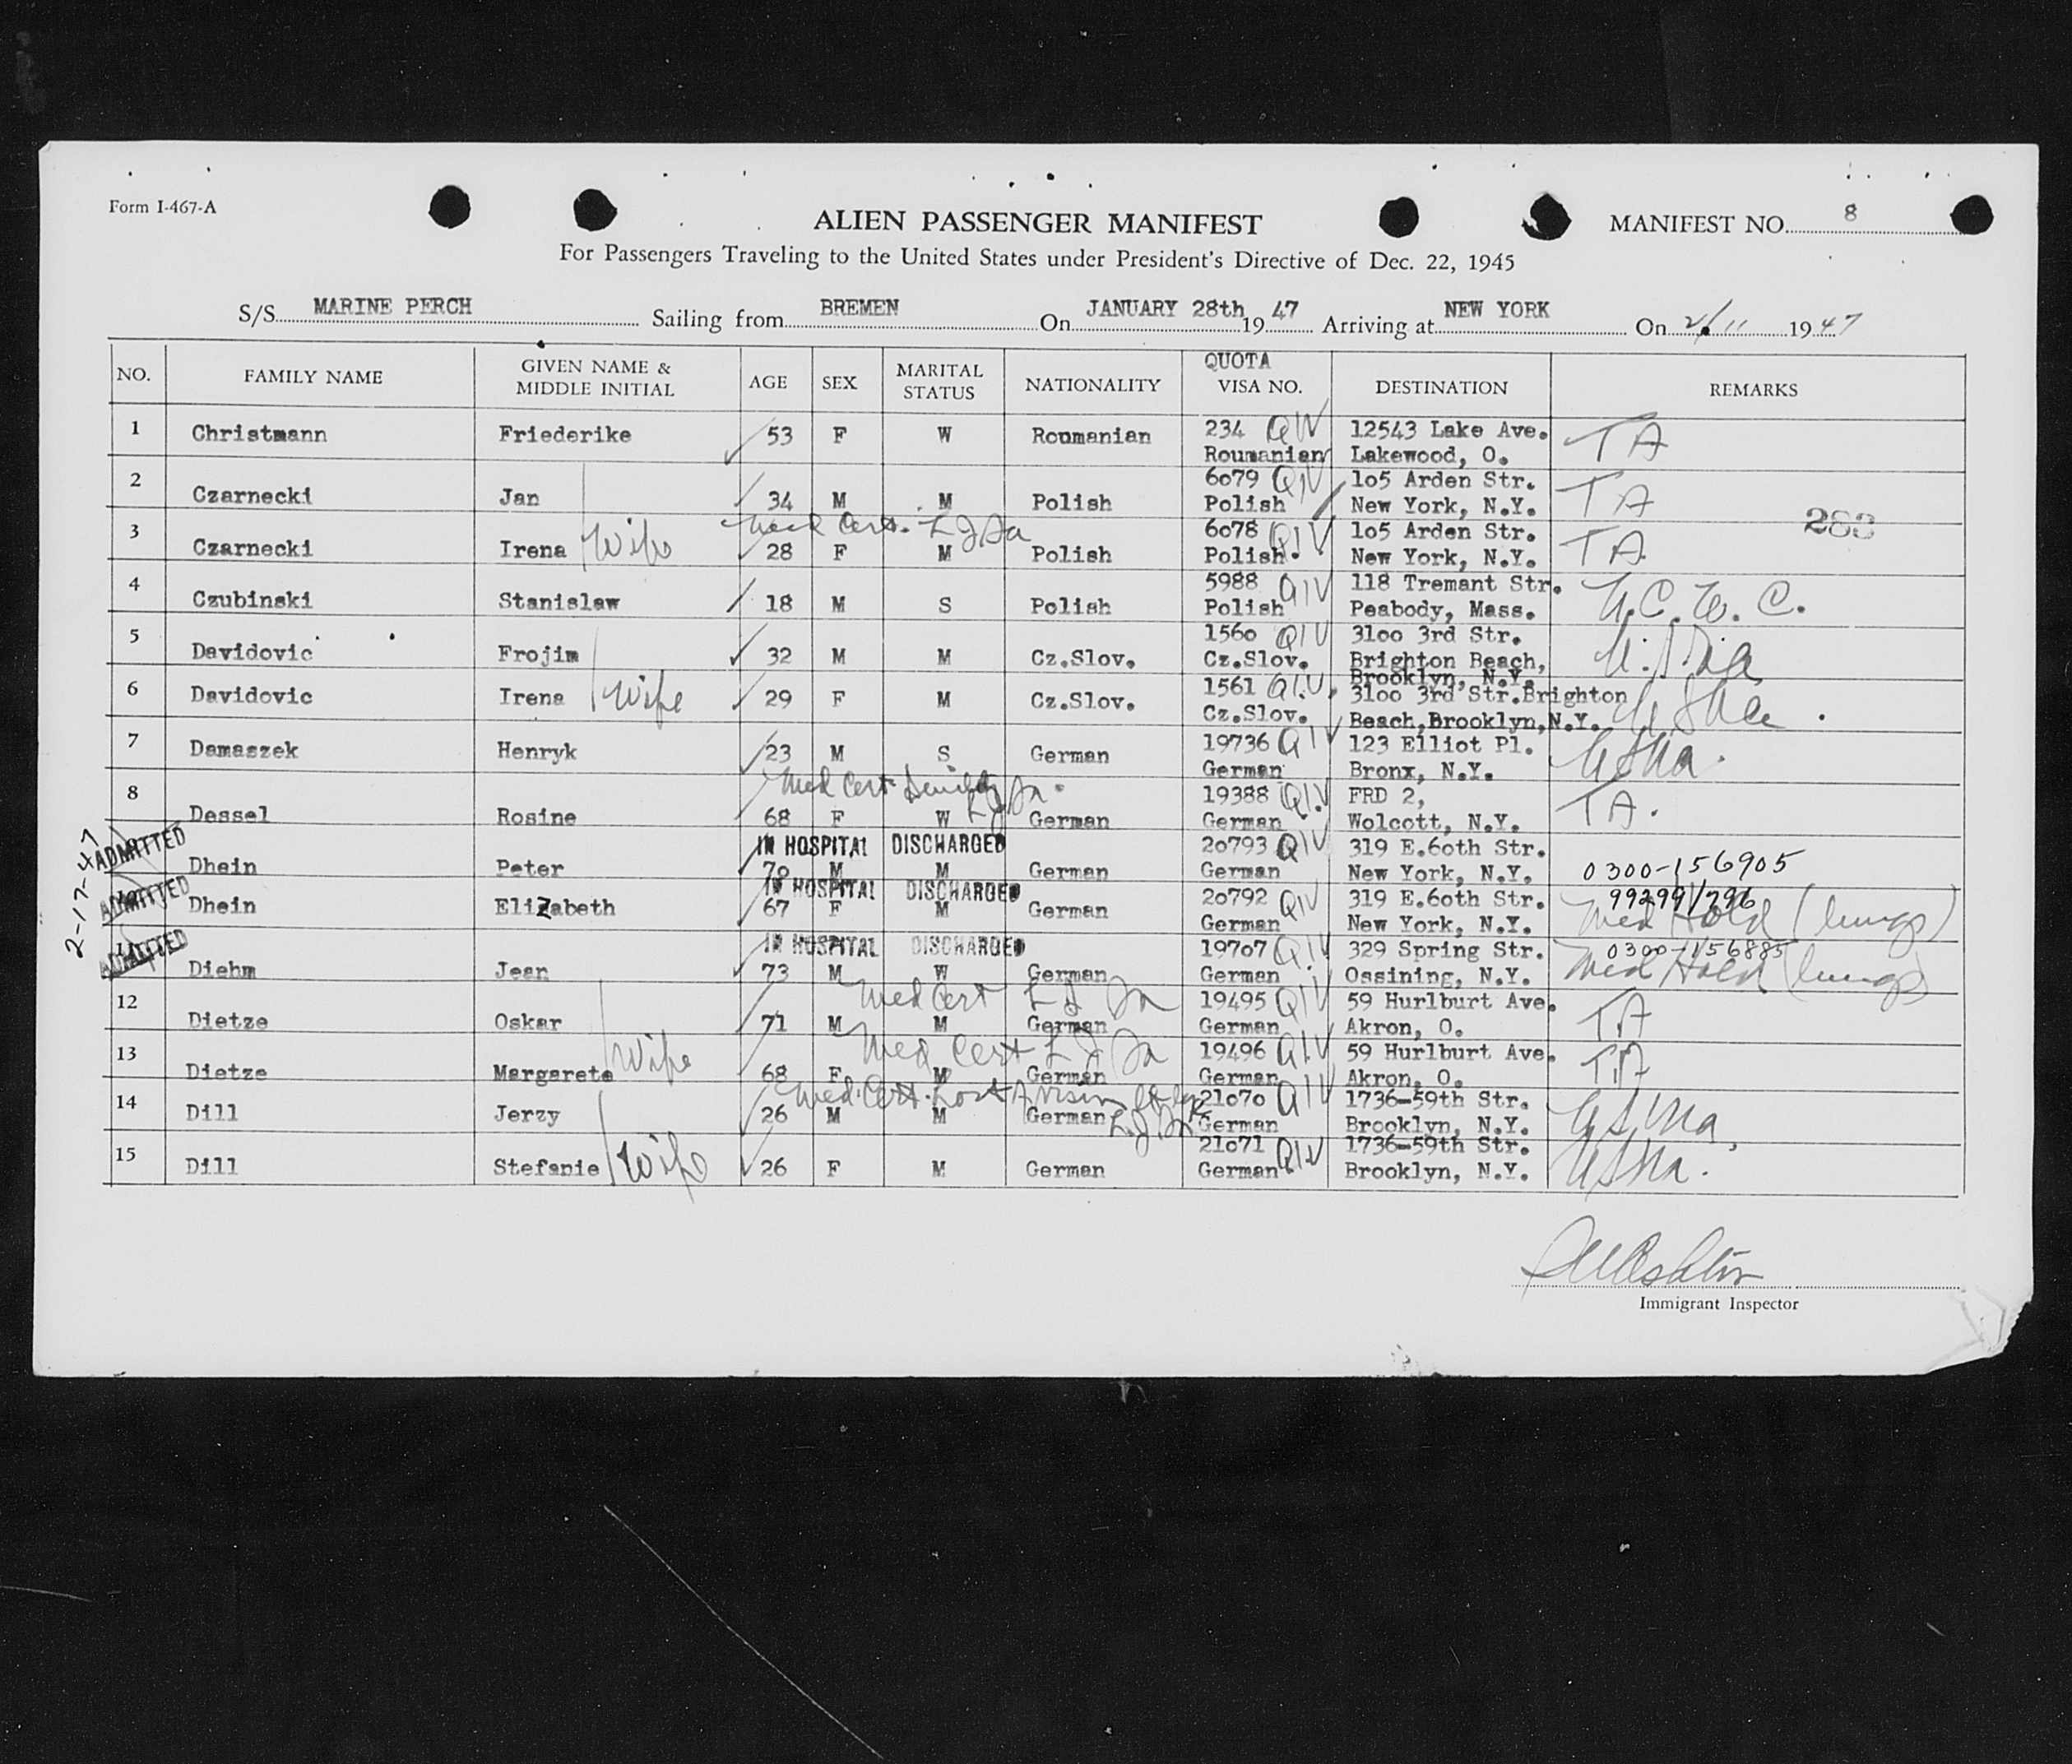 Form I-467-A
ALIEN PASSENGER MANIFEST
MANIFEST NO. 8
For Passengers Traveling to the United States under President's Directive of Dec. 22, 1945
S/S MARINE PERCH Sailing from BREMEN On JANUARY 28th 19 47 Arriving at NEW YORK On 2/11 19 47
NO. FAMILY NAME GIVEN NAME & MIDDLE INITIAL AGE SEX MARITAL STATUS NATIONALITY QUOTA VISA NO. DESTINATION REMARKS
1 Christmann Friederike 53 F W Roumanian 234 QIV 12543 Lake Ave. TA
Roumanian Lakewood, O.
2 Czarnecki Jan 34 M M Polish 6079 QIV 1o5 Arden Str. TA
Polish New York, N.Y.
283
Med Cert.
3 Czarnecki Irena Wife 28 F M Polish 6078 QIV 1o5 Arden Str. TA
Polish New York, N.Y.
4 Czubinski Stanislaw 18 M S Polish 5988 QIV 118 Tremant Str. N.C.W.C.
Polish Peabody, Mass.
5 Davidovic Frojim 32 M M Cz.Slov. 156o QIV 31oo 3rd Str.
Cz.Slov. Brighton Beach,
Brooklyn, N.Y.
6 Davidovic Irena Wife 29 F M Cz.Slov. 1561 QIV 31oo 3rd Str.Brighton
Cz.Slov. Beach,Brooklyn,N.Y.
7 Damaszek Henryk 23 M S German 19736 QIV 123 Elliot Pl. USNA.
German Bronx, N.Y.
Med Cert Senility
8 Dessel Rosine 68 F W German 19388 QIV FRD 2, TA.
German Wolcott, N.Y.
2-17-47
ADMITTED IN HOSPITAL DISCHARGED
Dhein Peter 7o M M German 2o793 QIV 319 E.6oth Str. 0300-156905
German New York, N.Y.
ADMITTED IN HOSPITAL DISCHARGED
Dhein Elizabeth 67 F M German 2o792 QIV 319 E.6oth Str. 99299/296
German New York, N.Y. Med Hold (lungs)
ADMITTED IN HOSPITAL DISCHARGED
Diehm Jean 73 M W German 197o7 QIV 329 Spring Str. 0300-156885
German Ossining, N.Y. Med Hold (lungs)
Med Cert
12 Dietze Oskar 71 M M German 19495 QIV 59 Hurlburt Ave. TA
German Akron, O.
Med Cert
13 Dietze Margarete Wife 68 F M German 19496 QIV 59 Hurlburt Ave. TA
German Akron, O.
Med. Cert. Lost vision
14 Dill Jerzy 26 M M German 21o7o QIV 1736-59th Str. USNA
German Brooklyn, N.Y.
15 Dill Stefanie Wife 26 F M German 21o71 QIV 1736-59th Str. USNA.
German Brooklyn, N.Y.
Immigrant Inspector